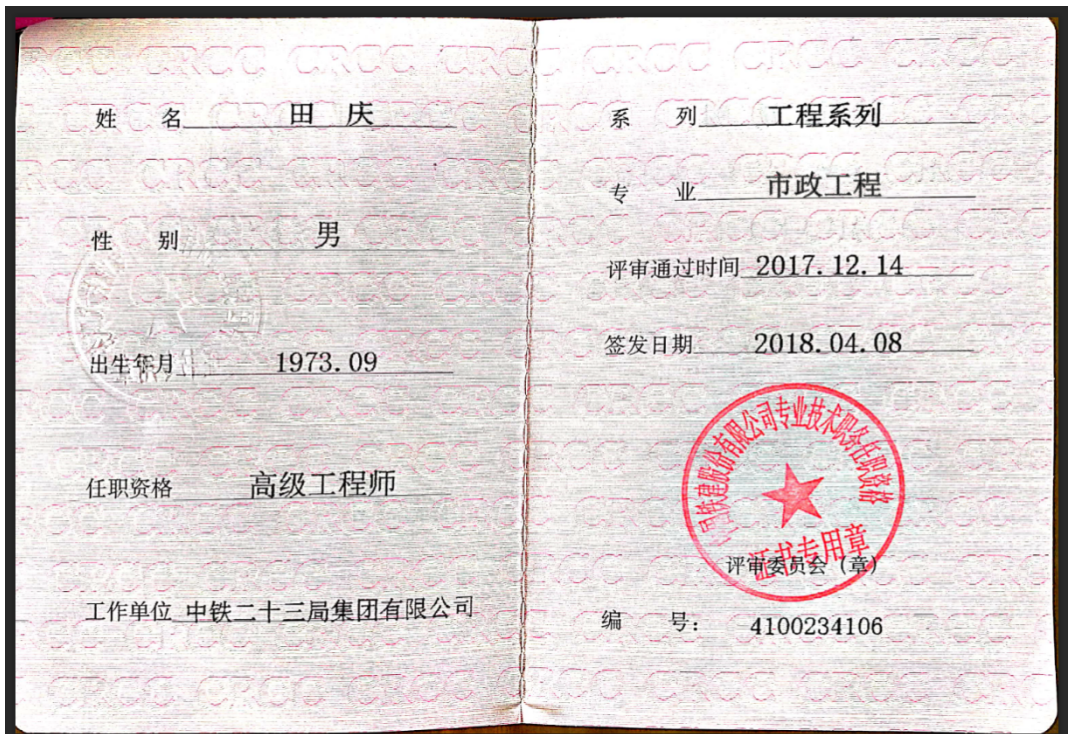 姓 名 田 庆
性 别 男
出生年月 1973.09
任职资格 高级工程师
工作单位 中铁二十三局集团有限公司
系 列 工程系列
专 业 市政工程
评审通过时间 2017.12.14
签发日期 2018.04.08
中国铁建股份有限公司专业技术职务任职资格
证书专用章
评审委员会（章）
编 号： 4100234106
CRCC